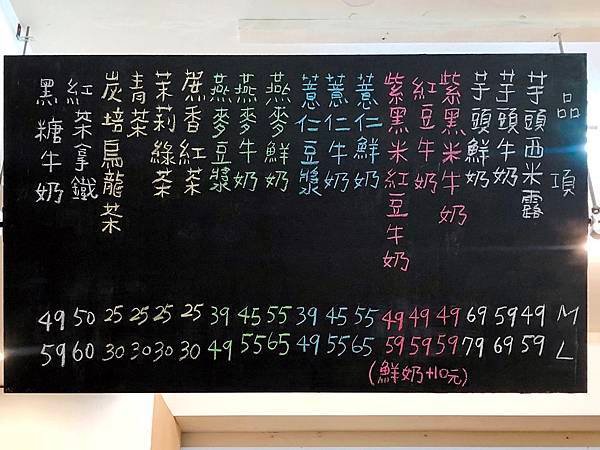 品項 M L
芋頭西米露 49 59
芋頭牛奶 59 69
芋頭鮮奶 69 79
紫黑米牛奶 49 59
紅豆牛奶 49 59
紫黑米紅豆牛奶 49 59
(鮮奶+10元)
薏仁鮮奶 55 65
薏仁牛奶 45 55
薏仁豆漿 39 49
燕麥鮮奶 55 65
燕麥牛奶 45 55
燕麥豆漿 39 49
蔗香紅茶 25 30
茉莉綠茶 25 30
青茶 25 30
炭培烏龍茶 25 30
紅茶拿鐵 50 60
黑糖牛奶 49 59